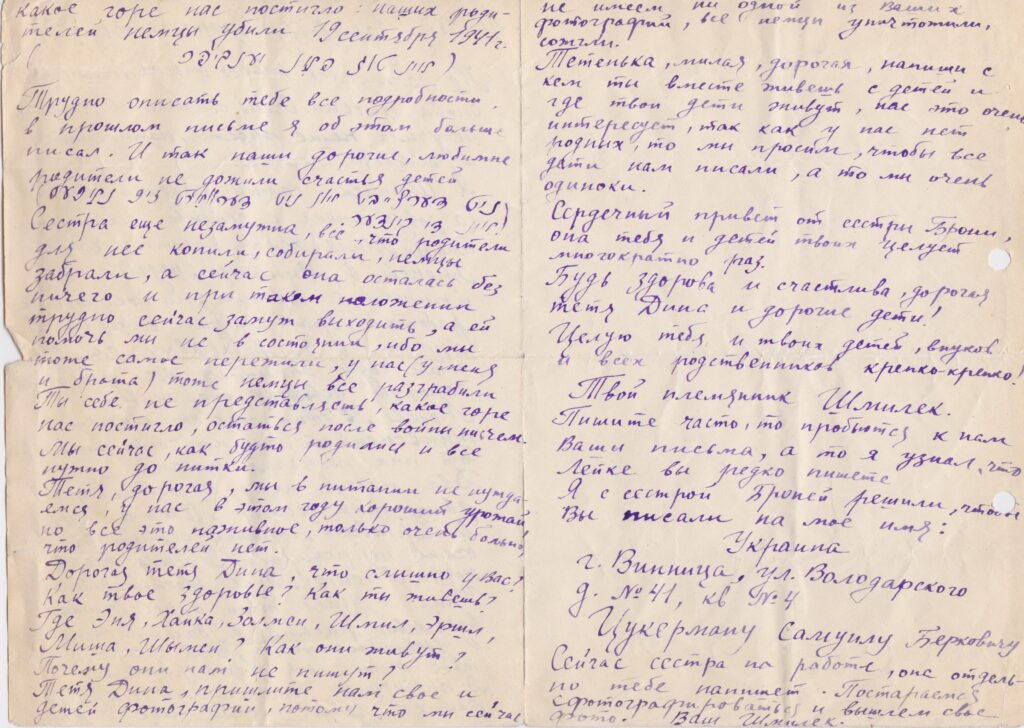 какое горе нас постигло: наших роди-
телей немцы убили 19 сентября 1941 г.
Трудно описать тебе все подробности,
в прошлом письме я об этом больше
писал. И так наши дорогие, любимые
родители не дожили счастья детей
Сестра еще незамужна, всё, что родители
для нее копили, собирали, немцы
забрали, а сейчас она осталась без
ничего и при таком положении
трудно сейчас замуж выходить, а ей
помочь мы не в состоянии, ибо мы
тоже самое пережили, у нас (у меня
и брата) тоже немцы все разграбили
Ты себе не представляешь, какое горе
нас постигло, остаться после войны ни с чем.
Мы сейчас, как будто родились и все
нужно до нитки.
Тетя, дорогая, мы в питании не нужда-
емся, у нас в этом году хороший урожай,
но все это наживное, только очень больно,
что родителей нет.
Дорогая тетя Дина, что слышно у Вас?
Как твое здоровье? Как ты живешь?
Где Эня, Хайка, Залмен, Шмил, Эршл,
Миша, Шымен? Как они живут?
Почему они нам не пишут?
Тетя Дина, пришлите нам свое и
детей фотографии, потому что мы сейчас
не имеем ни одной из Ваших
фотографий, все немцы уничтожили,
сожгли.
Тетенька, милая, дорогая, напиши с
кем ты вместе живешь с детей и
где твои дети живут, нас это очень
интересует, так как у нас нет
родных, то мы просим, чтобы все
дети нам писали, а то мы очень
одиноки.
Сердечный привет от сестры Брони,
она тебя и детей твоих целует
многократно раз.
Будь здорова и счастлива, дорогая
тетя Дина и дорогие дети!
Целую тебя и твоих детей, внуков
и всех родственников крепко-крепко!
Твой племянник Шмилек.
Пишите часто, то пробьются к нам
Ваши письма, а то я узнал, что
Лейке вы редко пишете
Я с сестрой Броней решили, чтобы
Вы писали на мое имя:
Украина
г. Винница, ул. Володарского
д. № 41, кв № 4
Цукерману Самуилу Берковичу
Сейчас сестра на работе, она отдель-
но тебе напишет. Постараемся
сфотографироваться и вышлем свое
фото. Ваш Шмилек.